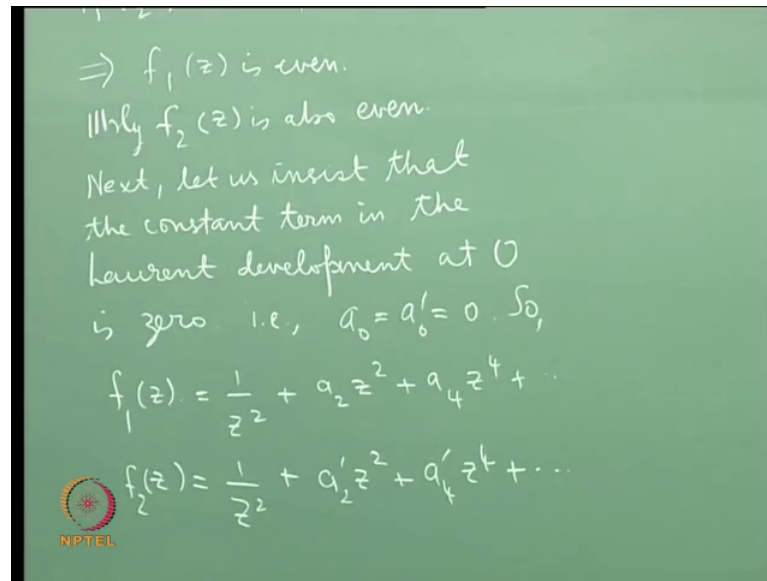 ⇒ f₁(z) is even.
IIIrly f₂(z) is also even.
Next, let us insist that
the constant term in the
Laurent development at 0
is zero. i.e., a₀ = a₀' = 0. So,
f₁(z) = 1/z² + a₂z² + a₄z⁴ + ..
f₂(z) = 1/z² + a₂'z² + a₄'z⁴ + ...
NPTEL